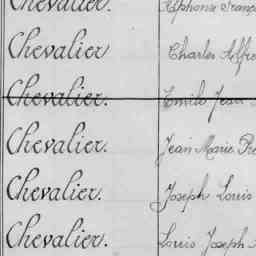 Chevalier.
Chevalier. Charles
Chevalier. Emile Jean
Chevalier. Jean Marie
Chevalier. Joseph Louis
Chevalier. Louis Joseph